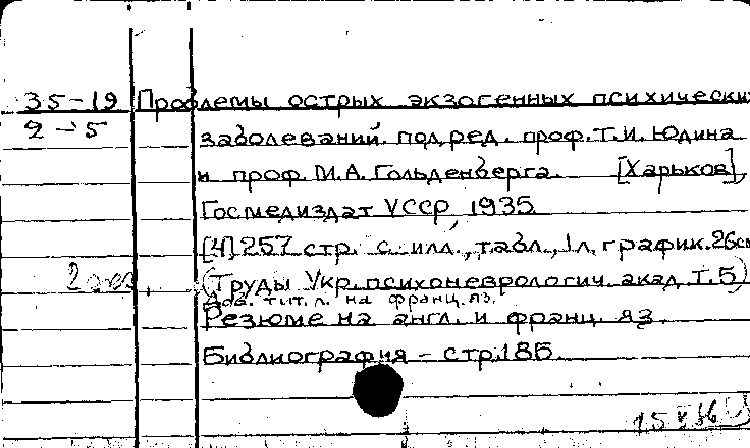 35-19 Проблемы острых экзогенных психически
2-5
заболеваний. под ред. проф. Т.И. Юдина
и проф. М.А. Гольденберга. [Харьков],
Госмедиздат УССР, 1935
[4] 257 стр. с илл., табл., 1 л. график. 26см
2 экз. (Труды Укр. психоневрологич. акад. Т. 5)
Доб. тит. л. на франц. яз.
Резюме на англ. и франц. яз.
Библиография - стр. 185